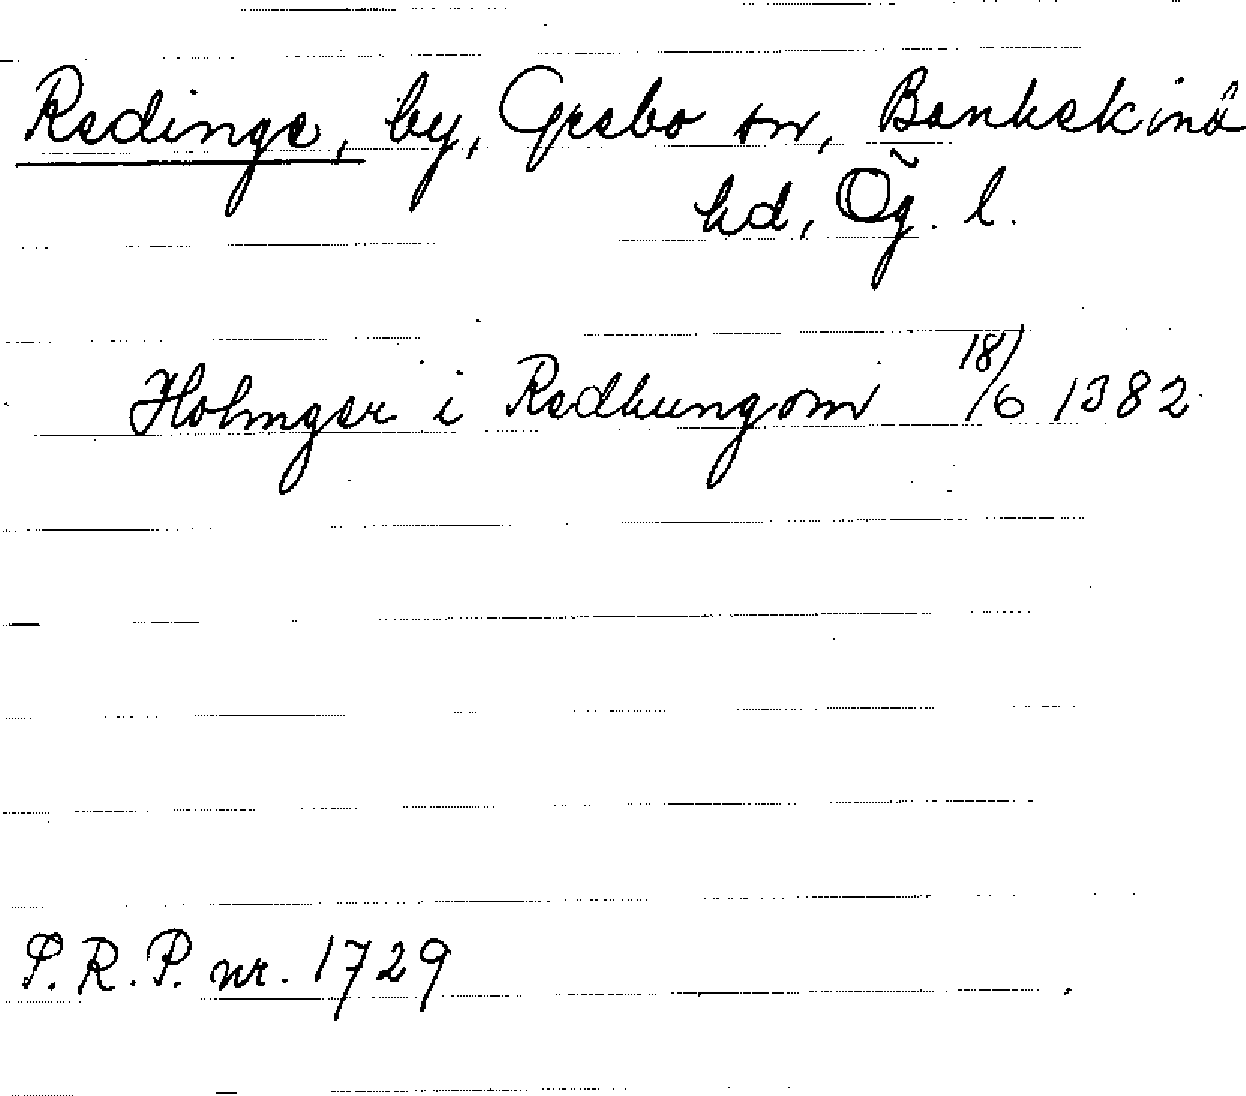 Redinge, by, Grebo sn, Bankekinds
hd, Ög. l.
Holmger i Redhungom 18/6 1382
S.R.P. nr. 1729